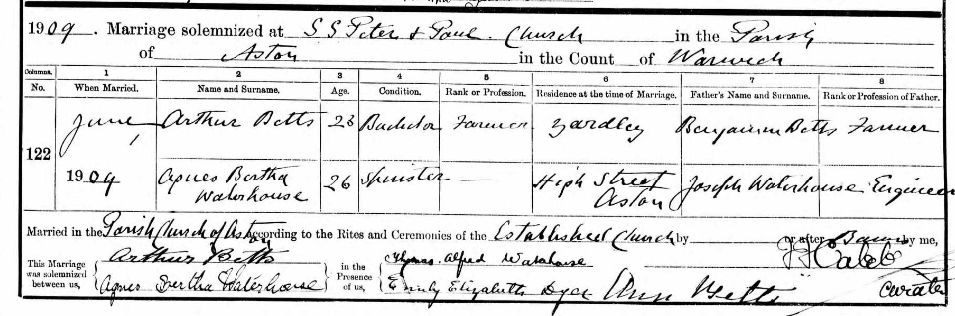 1909. Marriage solemnized at S S Peter & Paul Church in the Parish
of Aston in the Count of Warwick
Columns. 1 2 3 4 5 6 7 8
No. When Married. Name and Surname. Age. Condition. Rank or Profession. Residence at the time of Marriage. Father's Name and Surname. Rank or Profession of Father.
June 1 Arthur Betts 28 Bachelor Farmer Yardley Benjamin Betts Farmer
122
1909 Agnes Bertha Waterhouse 26 Spinster — High Street Aston Joseph Waterhouse Engineer
Married in the Parish Church of Aston according to the Rites and Ceremonies of the Established Church by or after Banns by me,
This Marriage was solemnized between us, Arthur Betts in the Presence of us, Alfred Waterhouse Caleb
Agnes Bertha Waterhouse Emily Elizabeth Dyer Ann Betts Curate